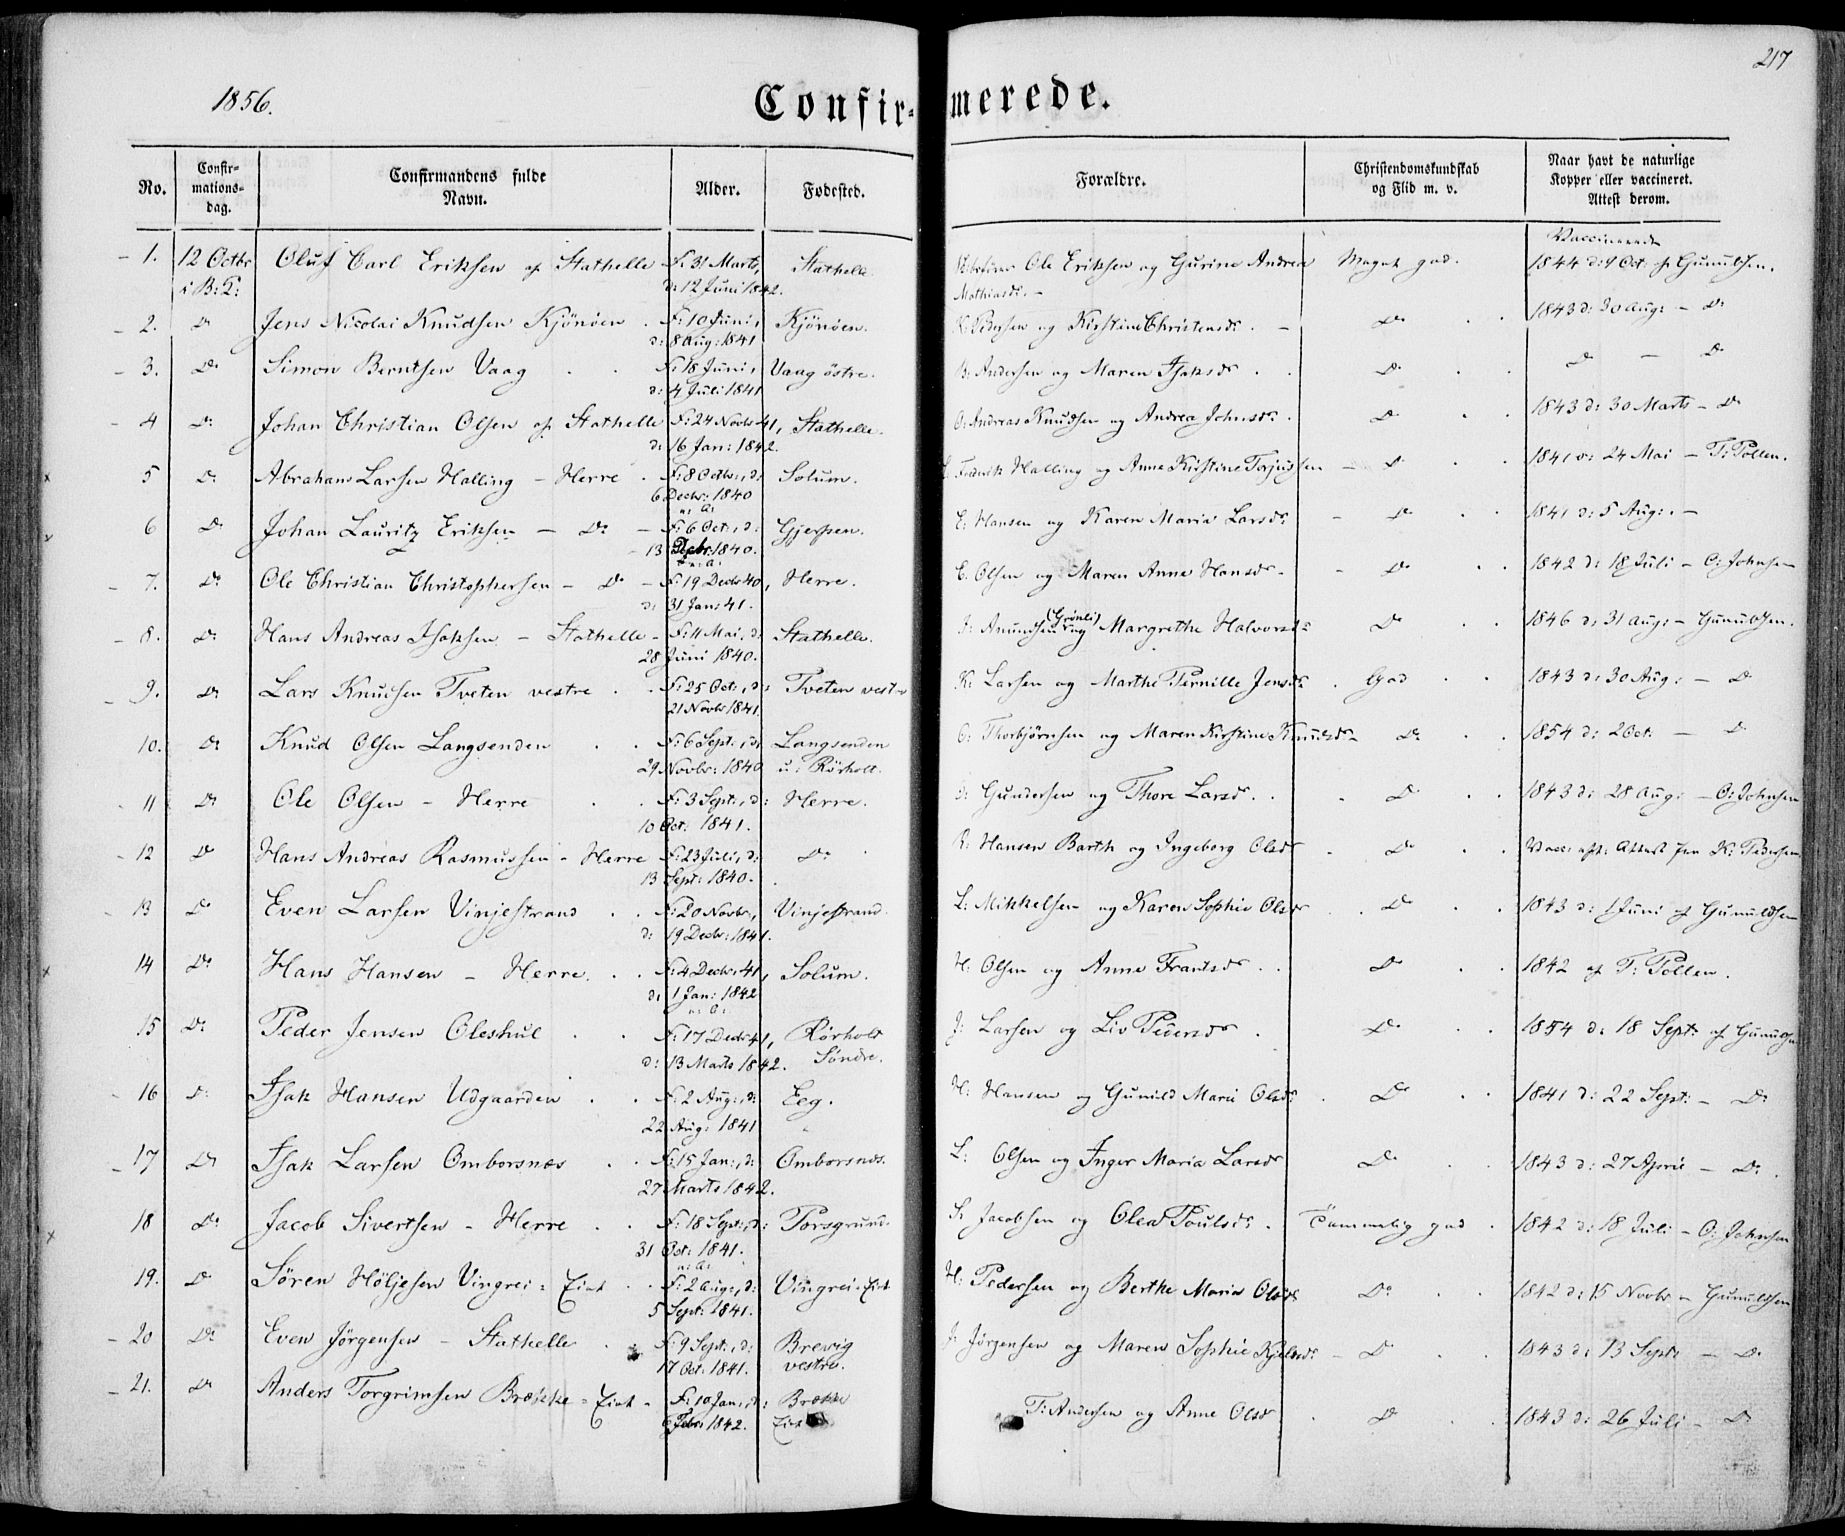 217
1856.
Confir- merede.
No. Confirmations-dag. Confirmandens fulde Navn. Alder. Fødested. Forældre. Christendomskundskab og Flid m. v. Naar havt de naturlige Kopper eller vaccineret. Attest derom.
1. 12 Octbr i B: K: Oluf Carl Eriksen af Stathelle F: 31 Marts, d: 12 Juni 1842. Stathelle Ole Eriksen og Gurine Andrea Mathiasdr. – Meget god. Vaccinerede 1844 d: 9 Oct: af Gunuldsen.
2. Do Jens Nicolai Knudsen Kjönöen . F: 10 Juni, d: 8 Aug: 1841 Kjönöen. K: Pedersen og Kirstine Christensdr. – Do 1843 d: 30 Aug: – Do
3. Do Simon Berntsen Vaag F: 18 Juni, d: 4 Juli 1841 Vaag östre. B: Andersen og Maren Isaksdr. Do Do – Do
4 Do Johan Christian Olsen af Stathelle F: 24 Novbr 41, d: 16 Jan: 1842. Stathelle. O: Andreas Knudsen og Andrea Johnsdr. Do 1843 d: 30 Marts – Do
5 Do Abraham Larsen Halling – Herre . F: 8 Octbr:, d: 6 Decbr: 1840 n: A: Solum. L: Frederik Halling og Anne Kirstine Torjussen – Do 1841 d: 24 Mai – T: Pollen.
6 Do Johan Lauritz Eriksen – Do – F: 6 Oct:, d: 13 Decbr: 1840. n: A: Gjerpen. E: Hansen og Karen Maria Larsdr – Do 1841 d: 5 Aug: –
7. Do Ole Christian Christophersen – Do – F: 19 Decbr 40, d: 31 Jan: 41. Herre. C. Olsen og Maren Anne Hansdr – Do 1842 d: 18 Juli – O: Johnsen
8. Do Hans Andreas Isaksen – Stathelle – F: 4 Mai, d: 28 Juni 1840. Stathelle. I: Anundsen (Grönli) og Margrethe Halvorsdr Do 1846 d: 31 Aug: – Gunuldsen.
9. Do Lars Knudsen Tveten vestre F: 25 Oct:, d: 21 Novbr 1841. Tveten vestre K: Larsen og Marthe Pernille Jensdr. God 1843 d: 30 Aug: – Do
10. Do Knud Olsen Langsenden F: 6 Sept:, d: 29 Novbr: 1840 Langsenden u: Rörholt. O: Thorbjörnsen og Maren Kirstine Knudsdr – Do 1854 d: 2 Oct: – Do
11 Do Ole Olsen – Herre F: 3 Sept:, d: 10 Oct: 1841. Herre. O: Gundersen og Thore Larsdr. Do 1843 d: 28 Aug: – O: Johnsen
12 Do Hans Andreas Rasmussen – Herre F: 23 Juli, d: 13 Sept: 1840. Do R: Hansen Barth og Ingeborg Olsdr – Do Vacc: eft: Attest fra K: Pedersen
13 Do Even Larsen Vinjestrand F: 20 Novbr, d: 19 Decbr: 1841. Vinjestrand. L: Mikkelsen og Karen Sophie Olsdr Do 1843 d: 1 Juni af Gunuldsen
14 Do Hans Hansen – Herre F: 4 Decbr 41, d: 1 Jan: 1842 n: A: Solum. H: Olsen og Anne Frantsdr Do 1842 af T: Pollen.
15 Do Peder Jensen Oleshul F: 17 Decbr 41, d: 13 Marts 1842. Rörholt Söndre. J: Larsen og Liv Pedersdr Do 1854 d: 18 Sept: af Gunuldsen
16 Do Isak Hansen Udgaarden F: 2 Aug:, d: 22 Aug: 1841 Eeg. H: Hansen og Gunild Marie Olsdr. Do 1841 d: 22 Sept: – Do
17 Do Isak Larsen Omborsnes F: 15 Jan:, d: 27 Marts 1842. Omborsnes. L: Olsen og Inger Maria Larsdr Do 1843 d: 27 April – Do
18 Do Jacob Sivertsen – Herre F: 18 Sept:, d: 31 Oct: 1841. n: A: Porsgrund. S: Jacobsen og Olea Poulsdr. Temmelig god 1842 d: 18 Juli – O: Johnsen
19. Do Sören Höljesen Vingrei = Eiet F: 2 Aug:, d: 5 Sept: 1841. Vingrei = Eiet H: Pedersen og Berthe Maria Olsdr Do 1842 d: 15 Novbr – Gunuldsen
20 Do Even Jörgensen – Stathelle F: 9 Sept:, d: 17 Oct: 1841. Brevig vestre. J. Jörgensen og Maren Sophie Kjeldsdr: – Do 1843 d: 13 Sept: – Do
21. Do Anders Torgrimsen Brække = Eiet – F: 10 Jan:, d: 6 Febr: 1842. Brække Eiet T: Andersen og Anne Olsdr Do 1843 d: 26 Juli – Do